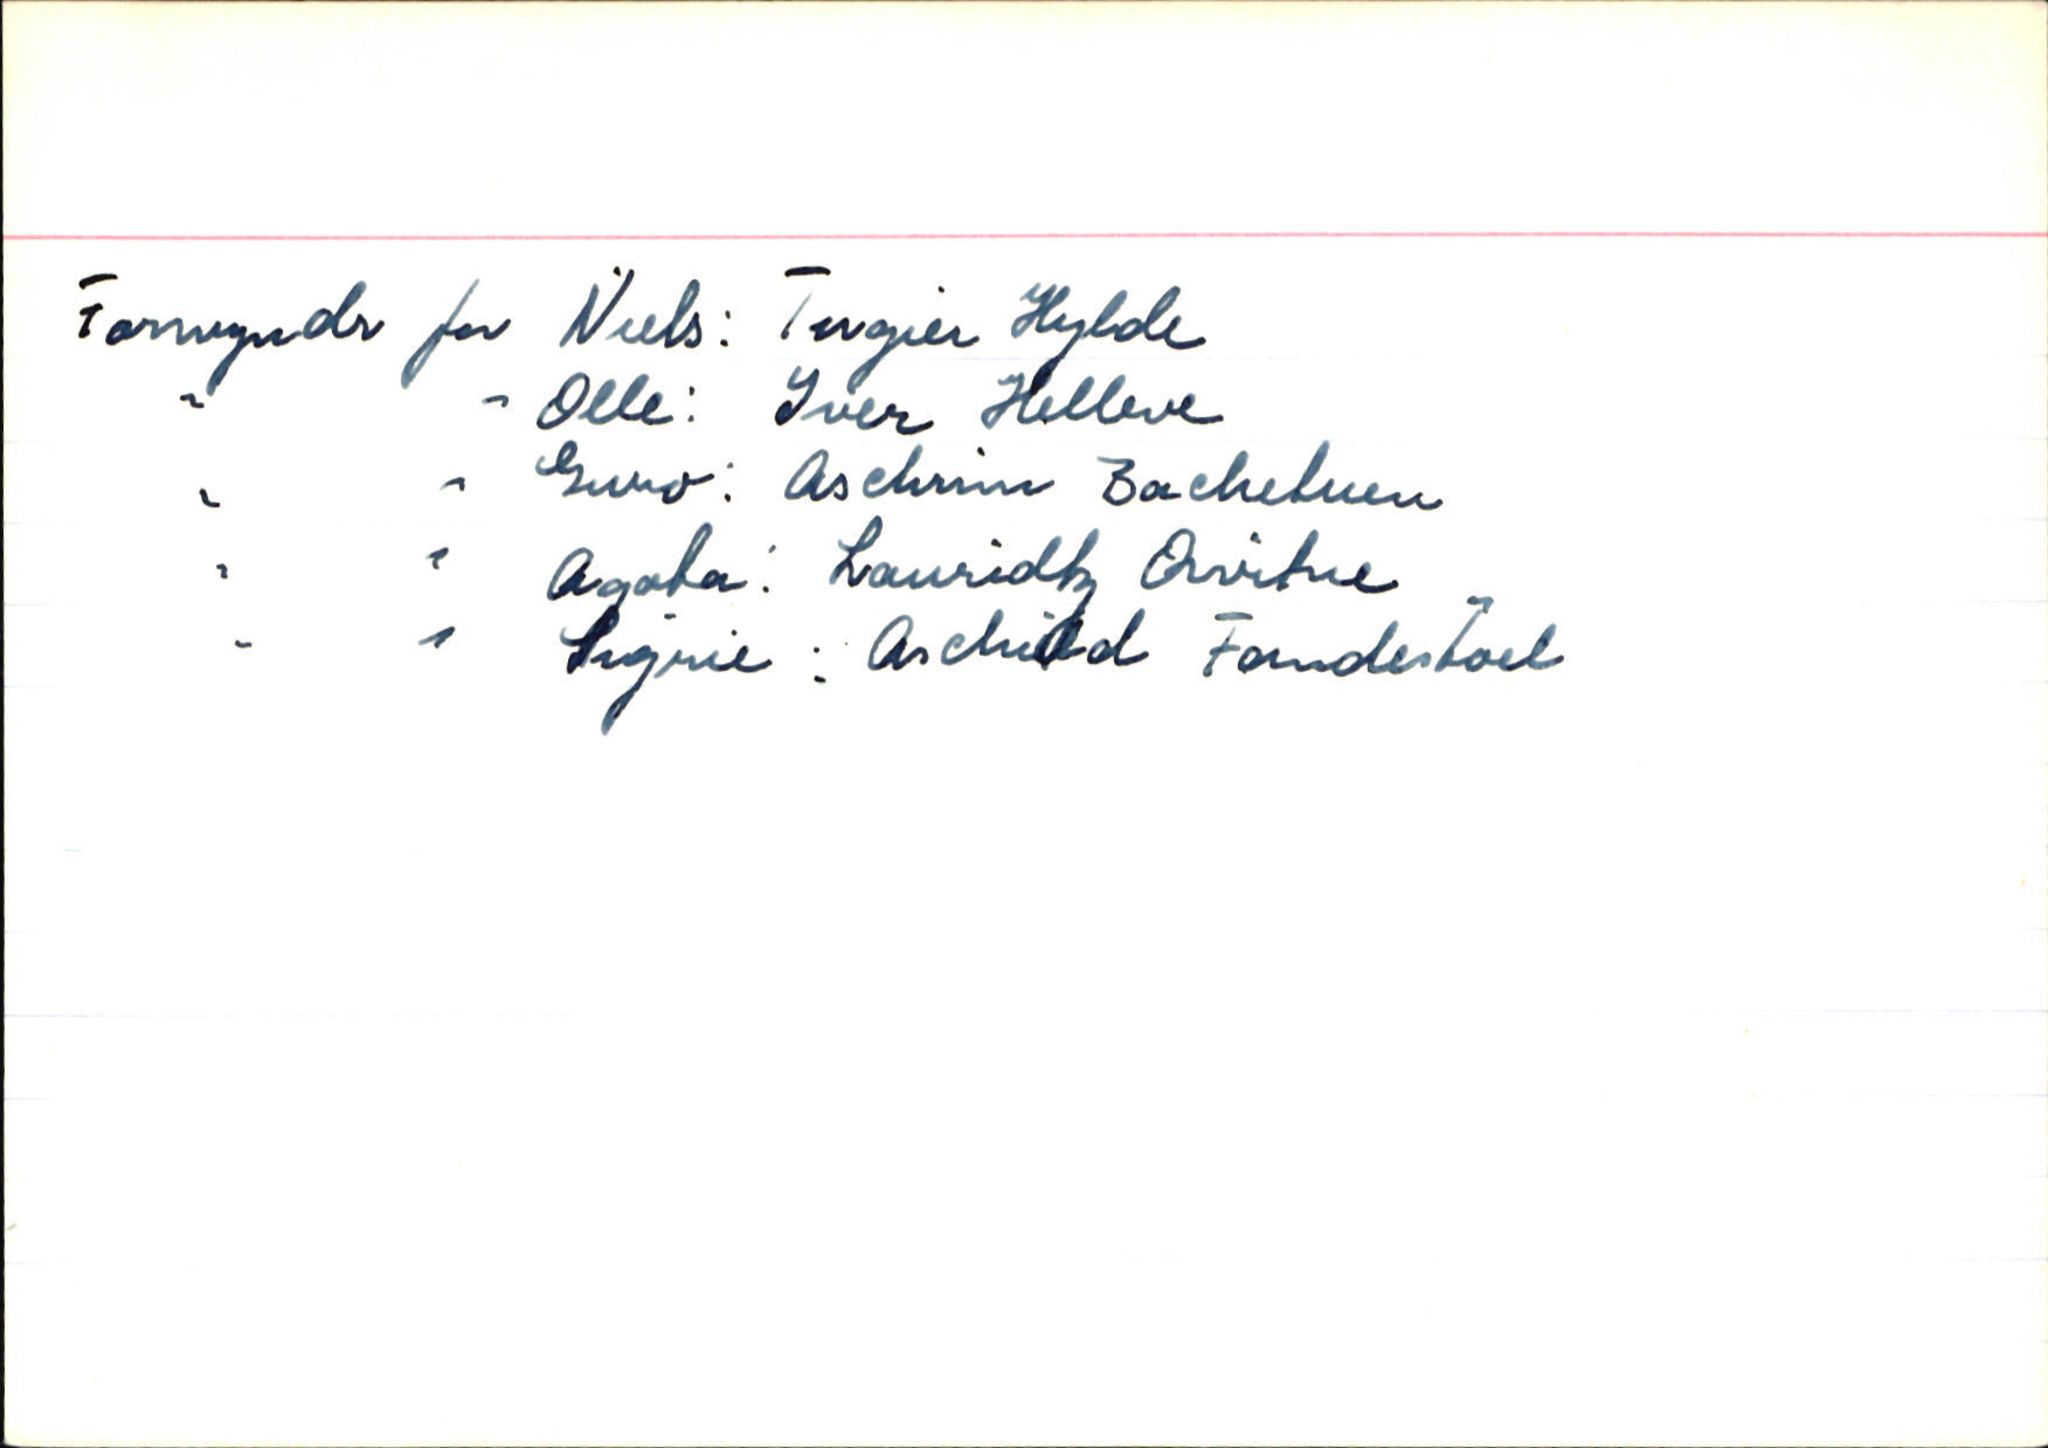 Formyndr for Niels: Torgier Hylde
" " Olle: Iver Helleve
" " Guro: Aschrim Bachetuen
" " Agota: Lauridtz Qvitne
" " Sigrie: Aschild Fondestoel